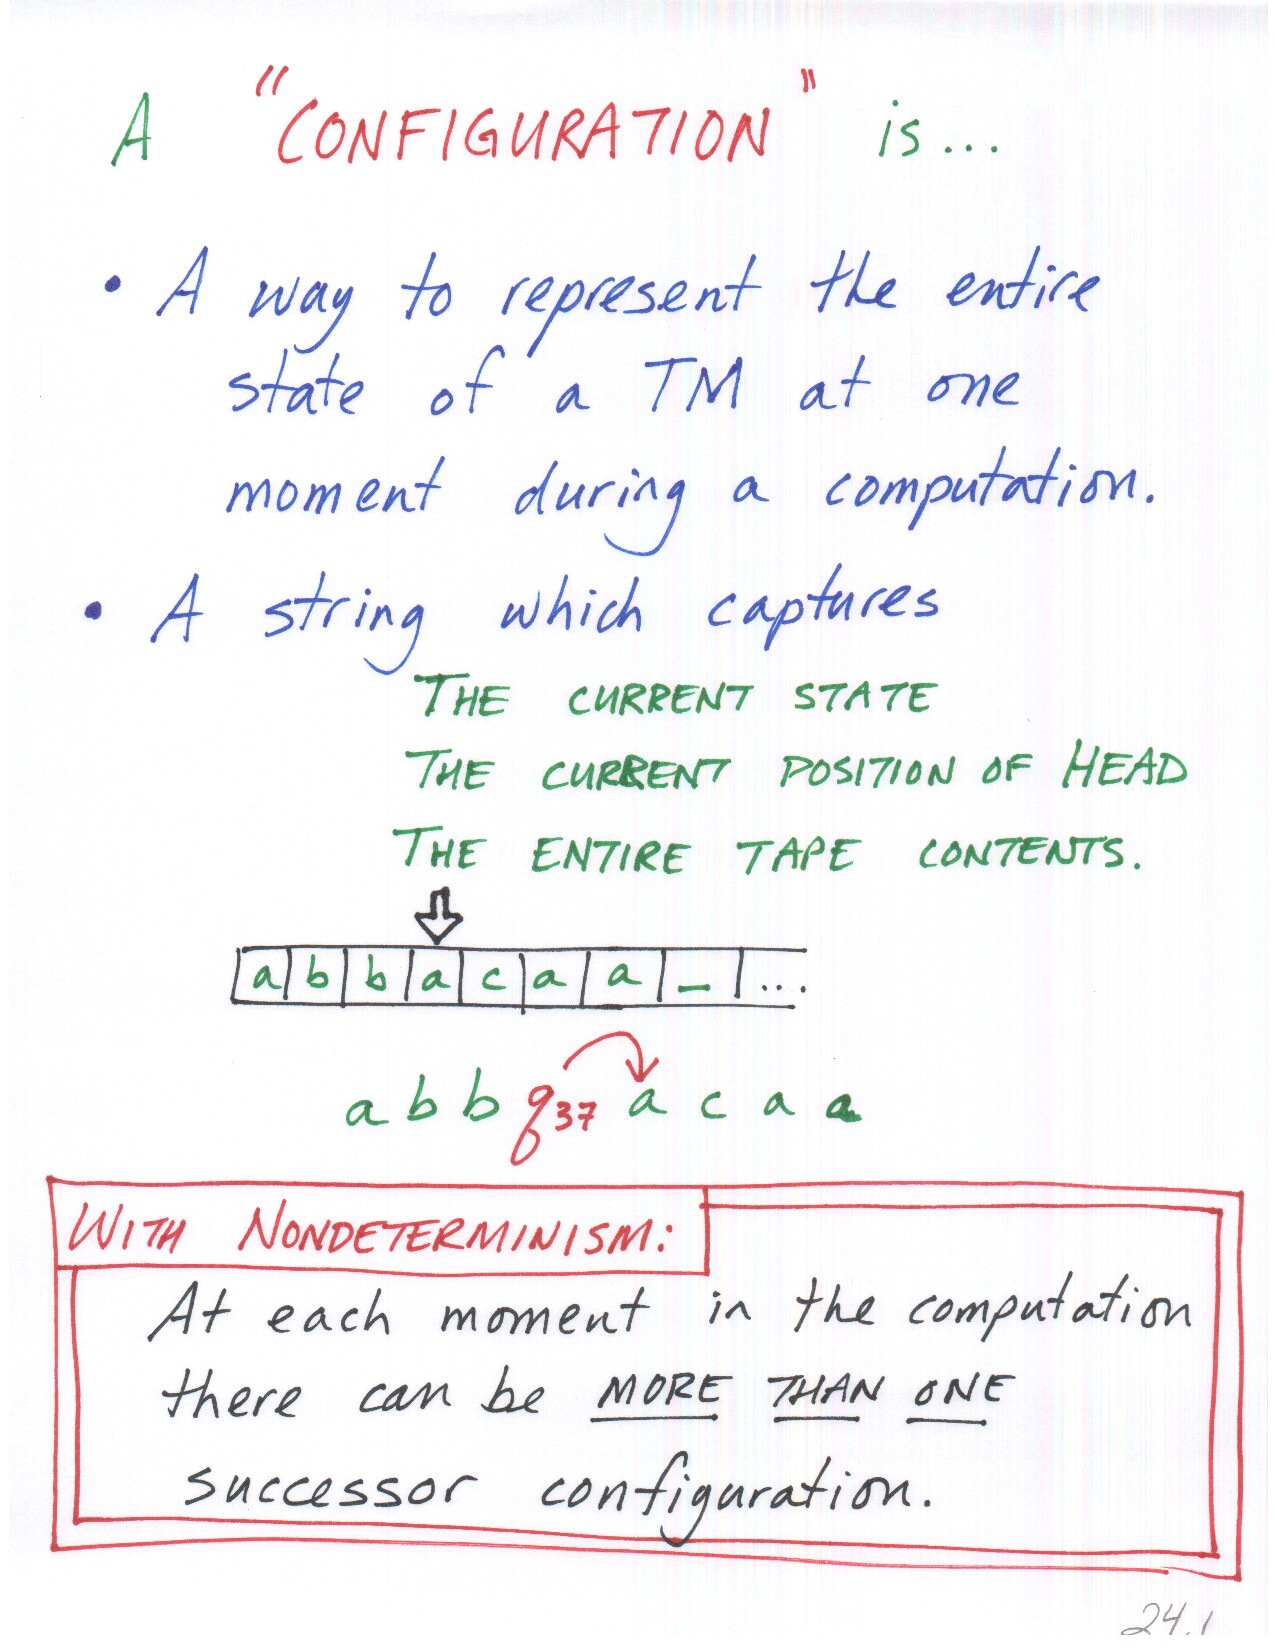 A "CONFIGURATION" is...
• A way to represent the entire
state of a TM at one
moment during a computation.
• A string which captures
THE CURRENT STATE
THE CURRENT POSITION OF HEAD
THE ENTIRE TAPE CONTENTS.
a b b a c a a _ ...
a b b q37 a c a a
WITH NONDETERMINISM:
At each moment in the computation
there can be MORE THAN ONE
successor configuration.
24.1